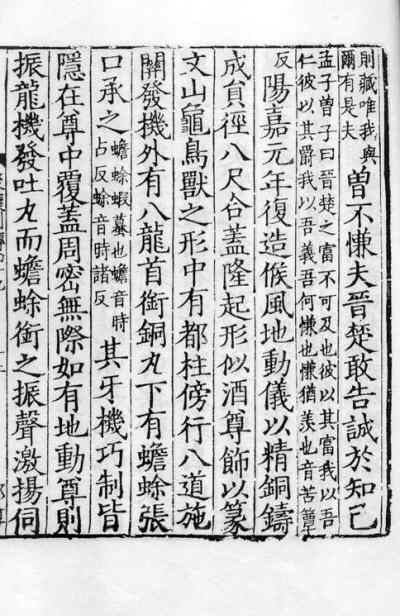 則藏唯我與
爾有是夫
曾不慊夫晉楚敢告誠於知己
孟子曾子曰晉楚之富不可及也彼以其富我以吾
仁彼以其爵我以吾義吾何慊也慊猶羨也音苦簟
反
陽嘉元年復造候風地動儀以精銅鑄
成貟徑八尺合蓋隆起形似酒尊飾以篆
文山龜鳥獸之形中有都柱傍行八道施
關發機外有八龍首銜銅丸下有蟾蜍張
口承之
蟾蜍蝦蟇也蟾音時
占反蜍音時諸反
其牙機巧制皆
隱在尊中覆蓋周密無際如有地動尊則
振龍機發吐丸而蟾蜍銜之振聲激揚伺